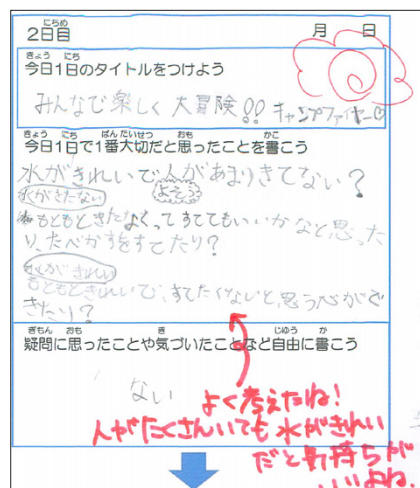 2日目 月 日
今日1日のタイトルをつけよう
みんなで楽しく大冒険!! キャンプファイヤー♡
今日1日で1番大切だと思ったことを書こう
水がきれいで人があまりきてない?
水がきたない よそう
もともときたなくってすててもいいかなと思った
り、たべかすをすてたり?
水がきれい
もともときれいで、すてたくないと思う心がで
きたり?
疑問に思ったことや気づいたことなど自由に書こう
ない
よく考えたね!
人がたくさんいても水がきれい
だと気持ちが
いいよね